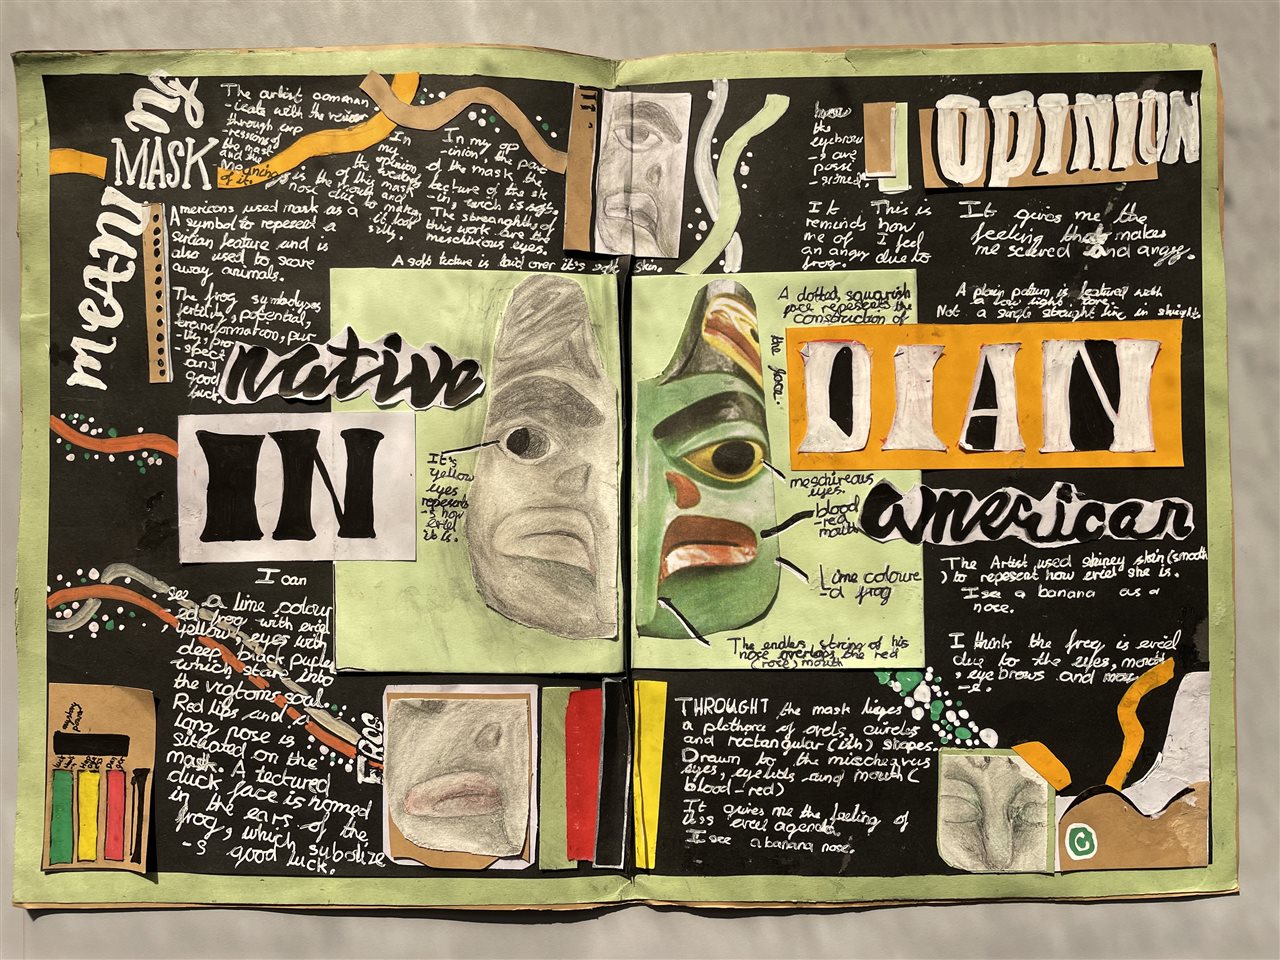 meaning
MASK
The artist commun
-icate with the viewer
through exp
-ressions of
the mask
and the
meaning
of it.
In
my
opinion,
the weakness
is of this mask
is the mouth and
nose due to make
it look
silly.
In my op
-inion, the pare
of the mask the
texture of the sk
-in, which is soft.
The streanghths of
this work are the
meschirious eyes.
A soft texture is laid over it's soft skin.
Americans used mask as a
symbol to represed a
surtian feature and is
also used to scare
away animals.
The frog symbolyzes
fertility, potential,
transformation, pur
-ity, pro
-spect
and
good
luck.
native
IN
It's
yellow
eyes
represents
-s how
eviel
it is.
I can
see a lime colour
-ed frog with eviel
, yellow, eyes with
deep, black puples
which stare into
the victoms soul.
Red lips and a
long nose is
situated on the
mask. A textured
duck face is homed
in the ears of the
frog, which subolize
-s good luck.
FROG
how
the
eyebrow
-s are
possi
-sioned.
I OPINION
It
reminds
me of
an angry
frog.
This is
how
I feel
due to
It gives me the
feeling that makes
me scared and angry.
A plain paturn is featured with
a low light tone.
Not a single straight line in straight
A dotted, squarish
face repesents the
construction of
the face.
DIAN
american
meschireous
eyes.
blood
-red
mouth
Lime coloure
-d frog
The endless string of his
nose overlaps the red
(rose) mouth
The Artist used shiney skin (smooth
) to repesent how eviel she is.
I see a banana as a
nose.
I think the frog is eviel
due to the eyes, mouth
, eyebrows and nos
-e.
THROUGHT the mask lieyes
a plethora of ovels, circles
and rectangular (ish) shapes.
Drawn to the mischevius
eyes, eyelids and mouth (
blood-red)
It gives me the feeling of
it's eviel agenda
I see a banana nose.